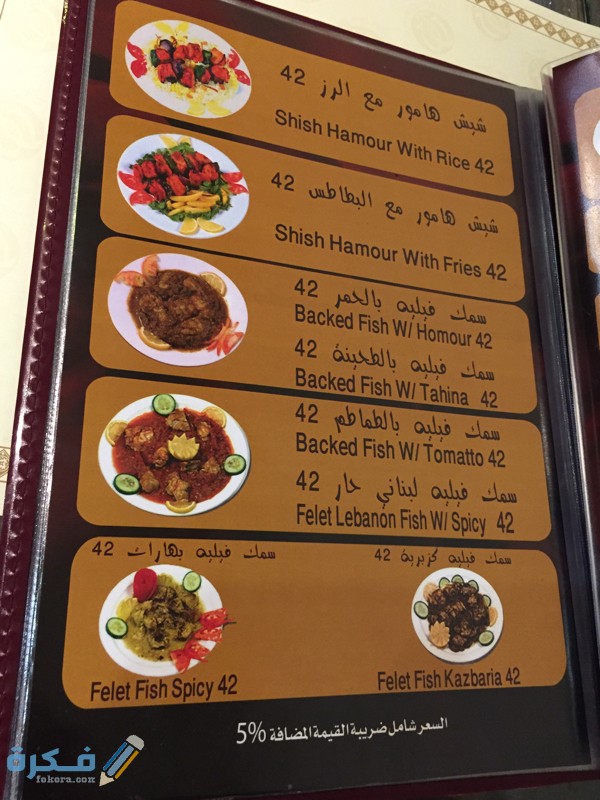 شيش هامور مع الرز 42
Shish Hamour With Rice 42
شيش هامور مع البطاطس 42
Shish Hamour With Fries 42
سمك فيليه بالحمر 42
Backed Fish W/ Homour 42
سمك فيليه بالطحينة 42
Backed Fish W/ Tahina 42
سمك فيليه بالطماطم 42
Backed Fish W/ Tomatto 42
سمك فيليه لبناني حار 42
Felet Lebanon Fish W/ Spicy 42
سمك فيليه بهارات 42
Felet Fish Spicy 42
سمك فيليه كزبرية 42
Felet Fish Kazbaria 42
السعر شامل ضريبة القيمة المضافة 5%
فكرة
fokora.com